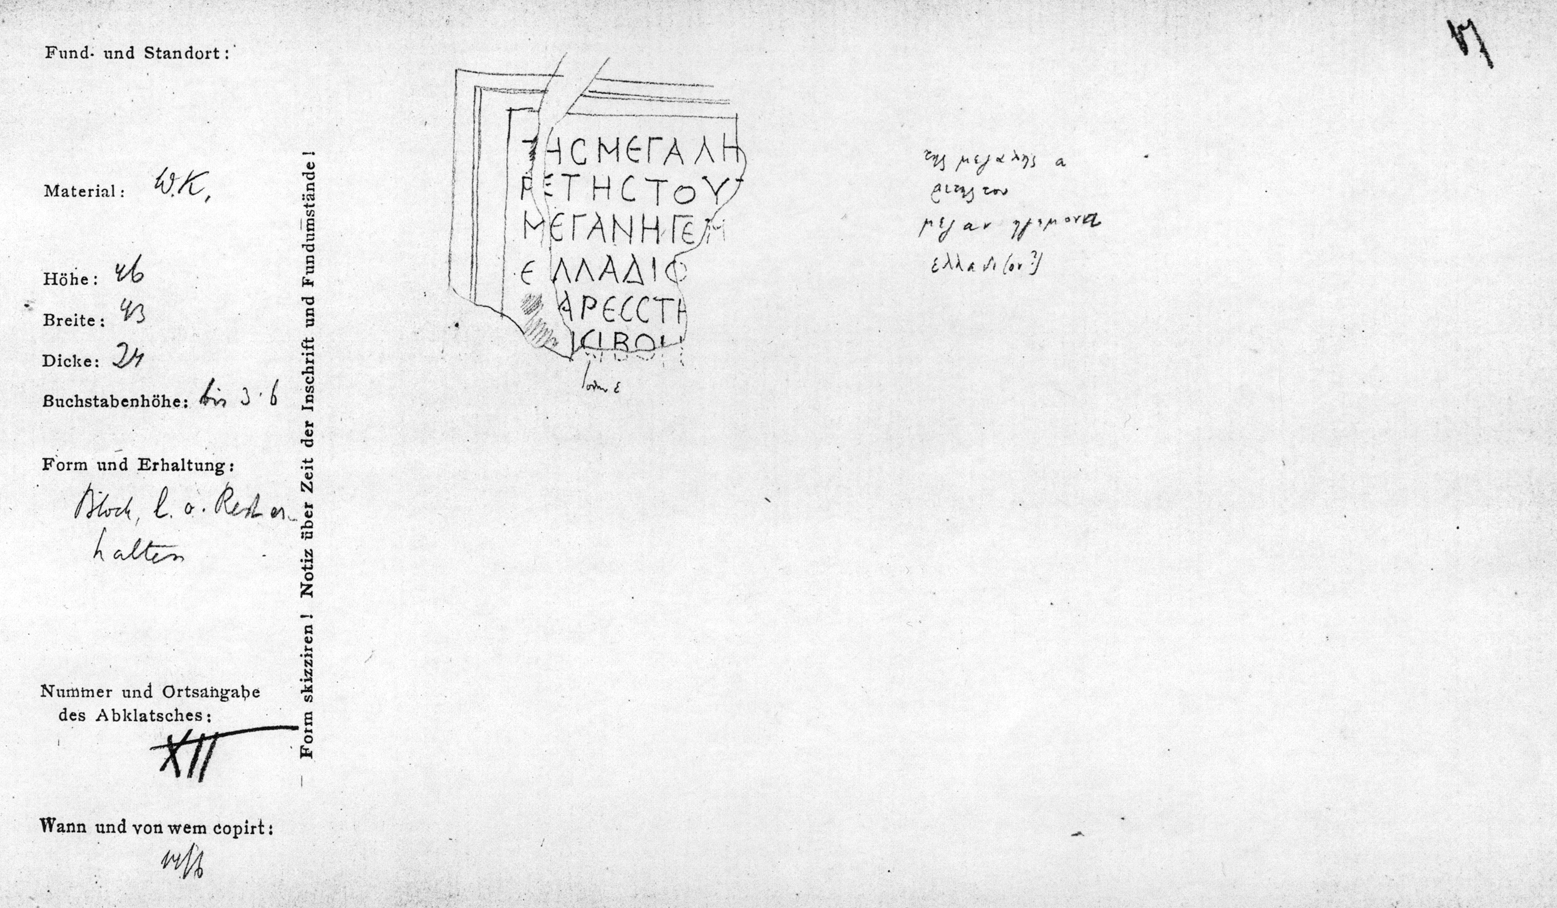 Fund- und Standort:
Material: W.K.
Höhe: 46
Breite: 43
Dicke: 24
Buchstabenhöhe: bis 3·6
Form und Erhaltung:
Block, l. o. Rest er-
halten
Nummer und Ortsangabe
des Abklatsches:
XII
Wann und von wem copirt:
Form skizziren! Notiz über Zeit der Inschrift und Fundumstände!
ΤΗCΜΕΓΑΛΗ
ΡΕΤΗCΤΟΥ
ΜΕΓΑΝΗΓΕΜ
ΕΛΛΑΔΙΟ
ΑΡΕCCΤΗ
ΚΙΒΩΙ
της μεγαλης α
ρετης του
μεγαν ηγεμονα
ελλαδι(ον?)